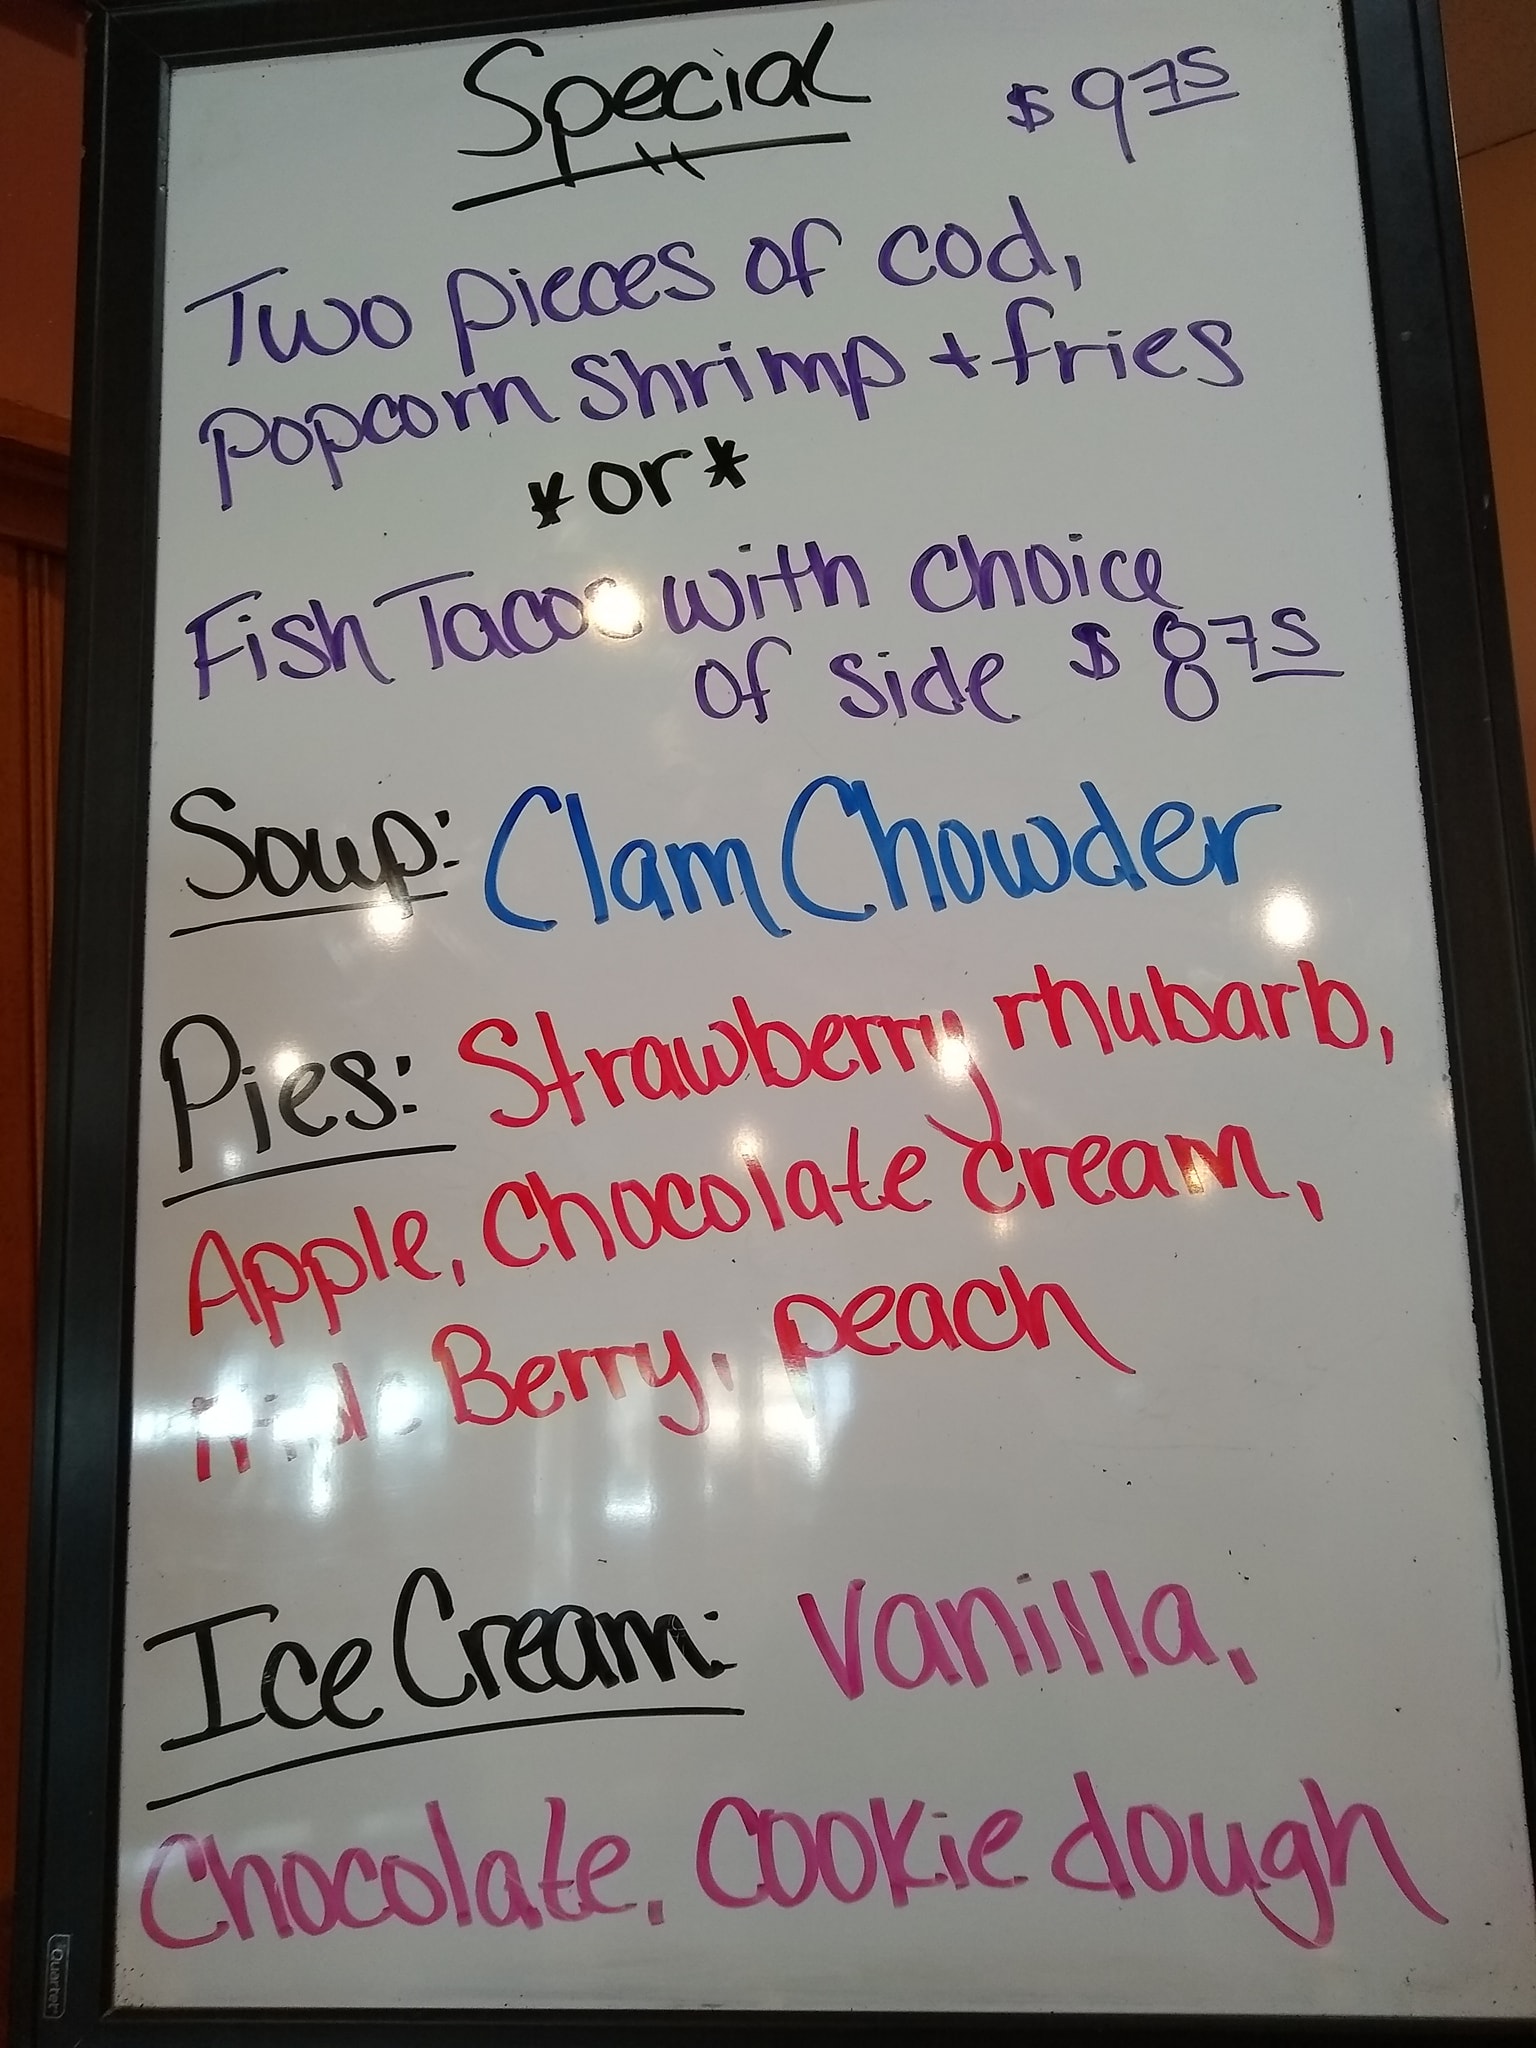 Special $975
Two pieces of cod,
popcorn shrimp + fries
*or*
Fish Tacos with choice
of side $875
Soup: Clam Chowder
Pies: Strawberry rhubarb,
Apple, Chocolate cream,
Triple Berry, peach
Ice Cream: Vanilla,
Chocolate, Cookie dough
Quartet